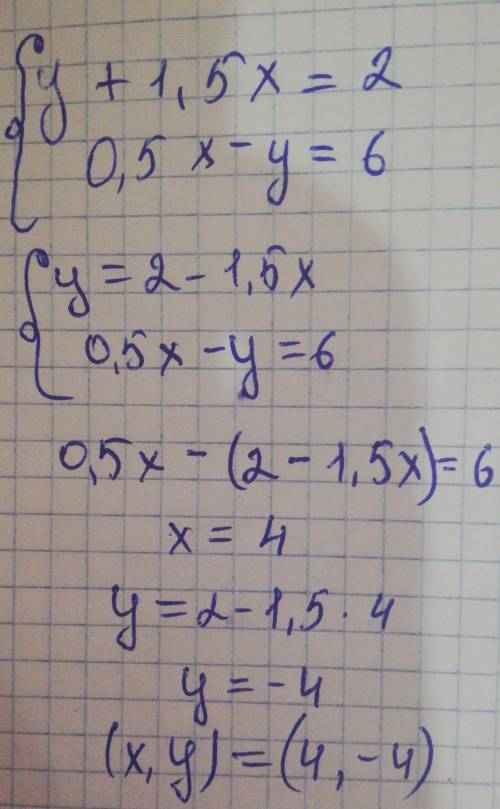 y + 1,5x = 2
0,5x - y = 6
y = 2 - 1,5x
0,5x - y = 6
0,5x - (2 - 1,5x) = 6
x = 4
y = 2 - 1,5 · 4
y = -4
(x, y) = (4, -4)